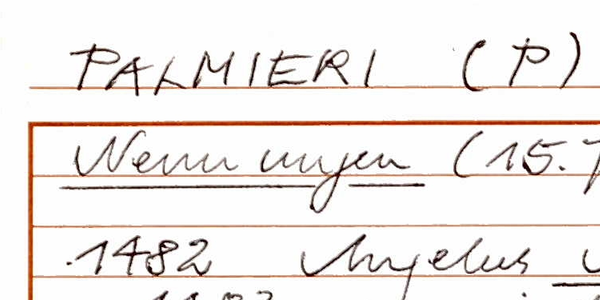 PALMIERI (P)
Nennungen (15.
1482 Angelus